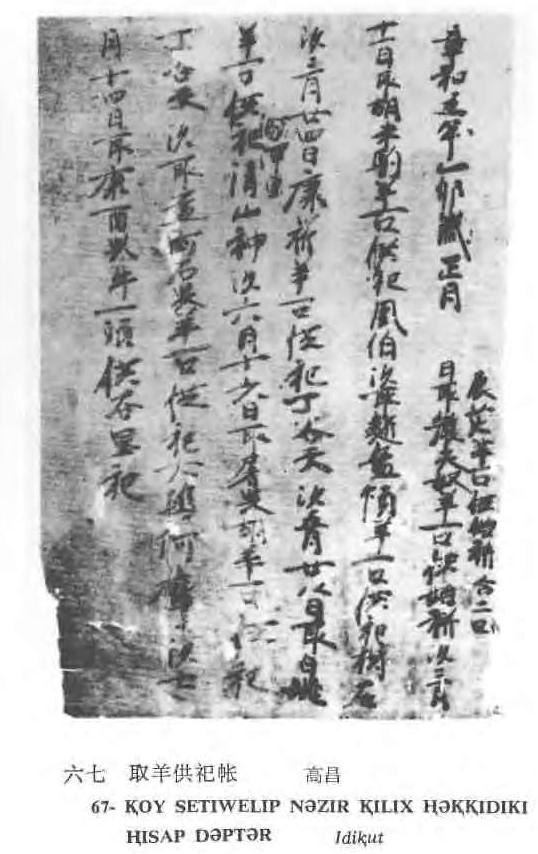 辰英羊一口供始耕合二口
章和五年乙卯歲正月 日取嚴天奴羊一口供始耕次三月
十一日取胡未駒羊一口供祀風伯次取麴孟順羊一口供祀樹石
次三月廿四日康祈羊一口供祀丁谷天次五月廿八日取白姚
羊一口供祀清山神次六月十六日取屠兒胡羊一口供祀
丁谷天次取孟阿石兒羊一口供祀大塢阿摩次七
月十四日取康酉兒牛一頭供谷里祀
六七 取羊供祀帐 高昌
67- ⱪOY SETIWELIP NƏZIR ⱪILIX ⱨƏⱪⱪIDIKI
ⱨISAP DƏPTƏR Idiⱪut